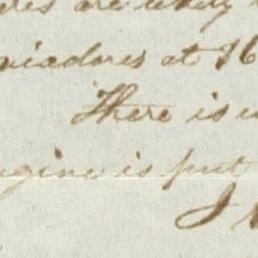 are likely
viadores at 16
There is
ngine is put
I